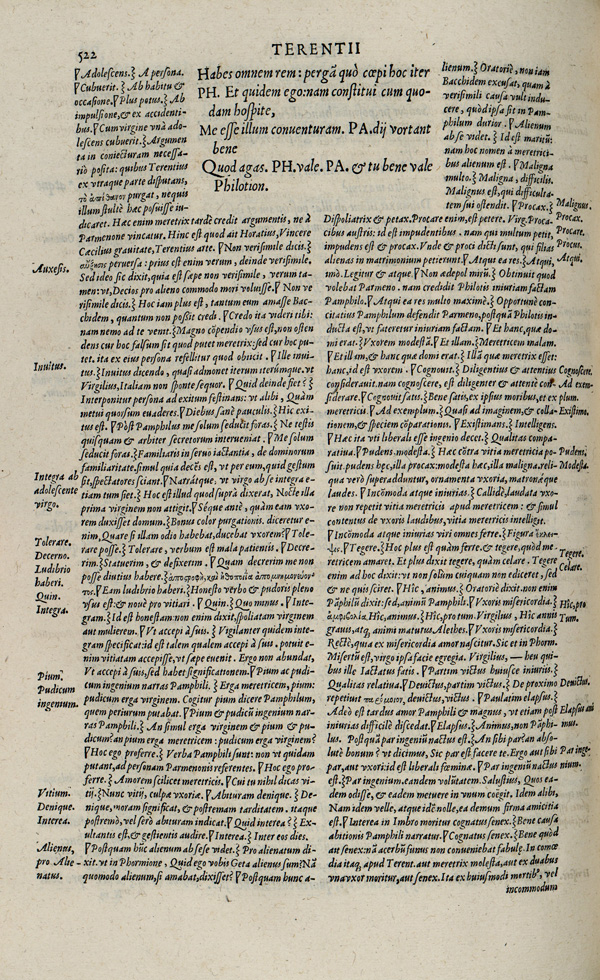 522
TERENTII
Habes omnem rem: pergã quò cœpi hoc iter
PH. Et quidem ego: nam constitui cum quo-
dam hospite,
Me esse illum conuenturam. PA. dij vortant
bene
Quod agas. PH. vale. PA. & tu bene vale
Philotion.
Adolescens. A persona.
Cubuerit. Ab habitu &
occasione. Plus potus. Ab
impulsione, & ex accidenti-
bus. Cum virgine vnà ado-
lescens cubuerit. Argumen
ta in coniecturam necessa-
riò posita: quibus Terentius
ex vtraque parte disputans,
purgat, nequis
illum stultè hæc posuisse iu-
dicaret. Hæc enim meretrix tardè credit argumentis, ne à
Parmenone vincatur. Hinc est quod ait Horatius, Vincere
Cæcilius grauitate, Terentius arte. Non verisimile dicis.
peruersa: prius est enim verum, deinde verisimile.
Sed ideo sic dixit, quia est sæpe non verisimile, verum ta-
men: vt, Decios pro alieno commodo mori voluisse. Non ve
risimile dicis. Hoc iam plus est, tantum eum amasse Bac-
chidem, quantum non possit credi. Credo ita videri tibi:
nam nemo ad te venit. Magno cõpendio vsus est, non osten
dens cur hoc falsum sit quod putet meretrix: sed cur hoc pu-
tet. ita ex eius persona refellitur quod obiicit. Ille inui-
tus. Inuitus dicendo, quasi admonet iterum iterumque. vt
Virgilius, Italiam non sponte sequor. Quid deinde fiet?
Interponitur persona ad exitum festinans: vt alibi, Quàm
metui quorsum euaderes. Diebus sanè pauculis. Hîc exi-
tus est. Pòst Pamphilus me solum seducit foras. Ne testis
quisquam & arbiter secretorum interueniat. Me solum
seducit foras. Familiaris in seruo iactantia, de dominorum
familiaritate. simul quia decẽs est, vt per eum, quid gestum
sit, spectatores sciant. Narrátque, vt virgo ab se integra e-
tiam tum siet. Hoc est illud quod suprà dixerat, Nocte illa
prima virginem non attigit. Séque antè, quàm eam vxo-
rem duxisset domum. Bonus color purgationis. diceretur e-
nim, Quare si illam odio habebat, ducebat vxorem? Tole-
rare posse. Tolerare, verbum est mala patientis. Decre-
rim. Statuerim, & defixerim. Quam decrerim me non
posse diutius habere.
Eam ludibrio haberi. Honesto verbo & pudoris pleno
vsus est: & nouè pro vitiari. Quin. Quo minus. Inte-
gram. Id est honestam: non enim dixit, spoliatam virginem
aut mulierem. Vt accepi à suis. Vigilanter quidem inte-
gram specificat: id est talem qualem accepi à suis, potuit e-
nim vitiatam accepisse, vt sæpe euenit. Ergo non abundat,
Vt accepi à suis, sed habet significationem. Pium ac pudi-
cum ingenium narras Pamphili. Erga meretricem, pium:
pudicum erga virginem. Cogitur pium dicere Pamphilum,
quem periurum putabat. Pium & pudicũ ingenium nar-
ras Pamphili. An simul erga virginem & pium & pu-
dicum? an pium erga meretricem: pudicum erga virginem?
Hoc ego proferre. Verba Pamphili sunt: non vt quidam
putant, ad personam Parmenonis referentes. Hoc ego pro-
ferre. Amorem scilicet meretricis. Cui tu nihil dicas vi-
tij. Nunc vitij, culpæ vxoriæ. Abiturum denique. De-
nique, moram significat, & postremam tarditatem. itaque
postremò, vel serò abituram indicat. Quid interea? Ex-
ultantis est, & gestientis audire. Interea. Inter eos dies.
Postquam hũc alienum ab sese videt. Pro alienatum di-
xit. vt in Phormione, Quid ego vobis Geta alienus sum? Nã
quomodo alienum, si amabat, dixisset? Postquam hunc a-
Auxesis.
Inuitus.
Integra ab
adolescente
virgo.
Tolerare.
Decerno.
Ludibrio
haberi.
Quin.
Integra.
Pium,
Pudicum
ingenium.
Vitium.
Denique.
Interea.
Alienus,
pro Alie-
natus.
lienum. Oratoriè, non iam
Bacchidem excusat, quam à
verisimili causa vult indu-
cere, quòd ipsa sit in Pam-
philum durior. Alienum
ab se videt. Id est maritũ:
nam hoc nomen à meretrici-
bus alienum est. Maligna
multo. Maligna, difficilis.
Malignus est, qui difficulta-
tem sui ostendit. Procax.
Dispoliatrix & petax. Procare enim, est petere. Virg. Proca-
cibus austris: id est impudentibus. nam qui multum petit,
impudens est & procax. Vnde & proci dicti sunt, qui filias
alienas in matrimonium petierunt. Atqui ea res. Atqui,
imò. Legitur & atque. Non ædepol mirũ. Obtinuit quod
volebat Parmeno. nam credidit Philotis iniuriam factam
Pamphilo. Atqui ea res multo maximè. Opportunè con-
citatius Pamphilum defendit Parmeno, postquã Philotis in-
ducta est, vt fateretur iniuriam factam. Et hanc, quæ do-
mi erat. Vxorem modestã. Et illam. Meretricem malam.
Et illam, & hanc quæ domi erat. Illã quæ meretrix esset:
hanc, id est vxorem. Cognouit. Diligentius & attentius
considerauit. nam cognoscere, est diligenter & attentè con-
siderare. Cognouit satis. Bene satis, ex ipsius moribus, et ex
meretricis. Ad exemplum. Quasi ad imaginem, & colla-
tionem, & speciem cõparationis. Existimans. Intelligens.
Hæc ita vti liberali esse ingenio decet. Qualitas compa-
ratiua. Pudens, modesta. Hæc cõtra vitia meretricia po-
suit. pudens hæc, illa procax: modesta hæc, illa maligna. reli-
qua verò superadduntur, ornamenta vxoria, matronæque
laudes. Incõmoda atque iniurias. Callidè, laudata vxo-
re non repetit vitia meretricis apud meretricem: & simul
contentus de vxoris laudibus, vitia meretricis intelligit.
Incõmoda atque iniurias viri omnes ferre. Figura
Tegere. Hoc plus est quàm ferre. & tegere, quòd me
retricem amaret. Et plus dixit tegere, quàm celare. Tegere
enim ad hoc dixit: vt non solùm cuiquam non ediceret, sed
& ne quis sciret. Hîc, animus. Oratoriè dixit. non enim
Pãphilũ dixit: sed, animũ Pamphili. Vxoris misericordia.
Hîc, animus. Hîc, pro tum. Virgilius, Hîc annis
grauis, atq, animi maturus Alethes. Vxoris misericordia.
Rectè, quia ex misericordia amor nascitur. Sic et in Phorm.
Misertũ est, virgo ipsa facie egregia. Virgilius, — heu qui-
bus ille Iactatus fatis. Partim victus huiusce iniuriis.
Qualitas relatiua. Deuictus, partim victus. De proximo
repetiuit deuictus, victus. Paulatim elapsus.
Adeò est tardus amor Pamphili & magnus, vt etiam post
iniurias difficilè discedat. Elapsus. Animus, non Pãphi-
lus. Postquã par ingeniũ nactus est. An sibi par? an abso-
lutè bonum? vt dicimus, Sic par est facere te. Ergo aut sibi
par, aut vxori: id est liberali fœminæ. Par ingeniũ nactus
est. Par ingenium. eandem volũtatem. Salustius, Quos ea-
dem odisse, & eadem metuere in vnum coëgit. Idem alibi,
Nam idem velle, atque idè nolle, ea demum firma amicitia
est. Interea in Imbro moritur cognatus senex. Bene causa
abitionis Pamphili narratur. Cognatus senex. Bene quòd
aut senex: nã acerbũ funus non conueniebat fabulæ. In comœ
dia itaq, apud Terent. aut meretrix molesta, aut ex duabus
vna vxor moritur, aut senex. Ita ex huiusmodi mortib', vel
incommodum
Malignus.
Procax.
Procare.
Procus.
Atqui.
Cognoscere.
Ad exem-
plum.
Existimo.
Pudens,
Modesta.
Tegere.
Celare.
Hîc, pro
Tum.
Deuictus.
Elapsus ani
mus.
Par inge-
nium.